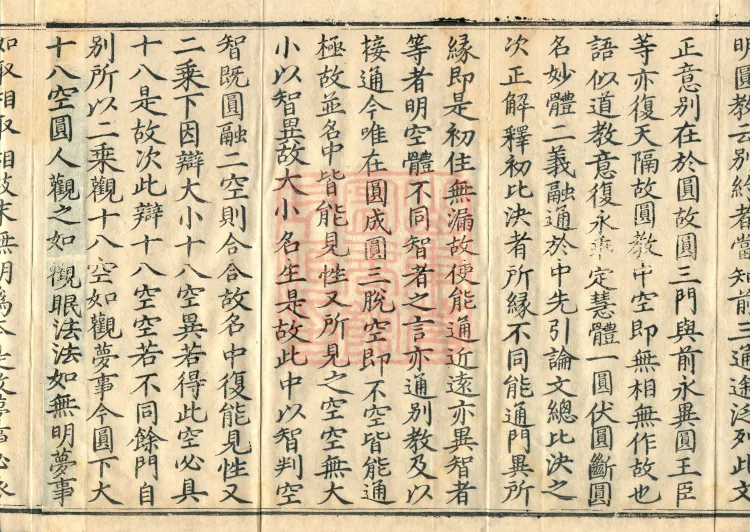 明圓教云別終者當知前三通逢泛列此文
正意別在於圓故圓三門與前永異圓王臣
等亦復天隔故圓教中空即無相無作故也
語似道教意復永乖定慧體一圓伏圓斷圓
名妙體二義融通於中先引論文總比決之
次正解釋初比決者所緣不同能通門異所
緣即是初住無漏故便能通近遠亦異智者
等者明空體不同智者之言亦通別教及以
接通今唯在圓成圓三脫空即不空皆能通
極故並名中皆能見性又所見之空空無大
小以智異故大小名生是故此中以智判空
智既圓融二空則合合故名中復能見性又
二乘下因辯大小十八空異若得此空必具
十八是故次此辯十八空空若不同餘門自
別所以二乘觀十八空如觀夢事今圓下大
十八空圓人觀之如觀眠法法如無明夢事
如取相取相